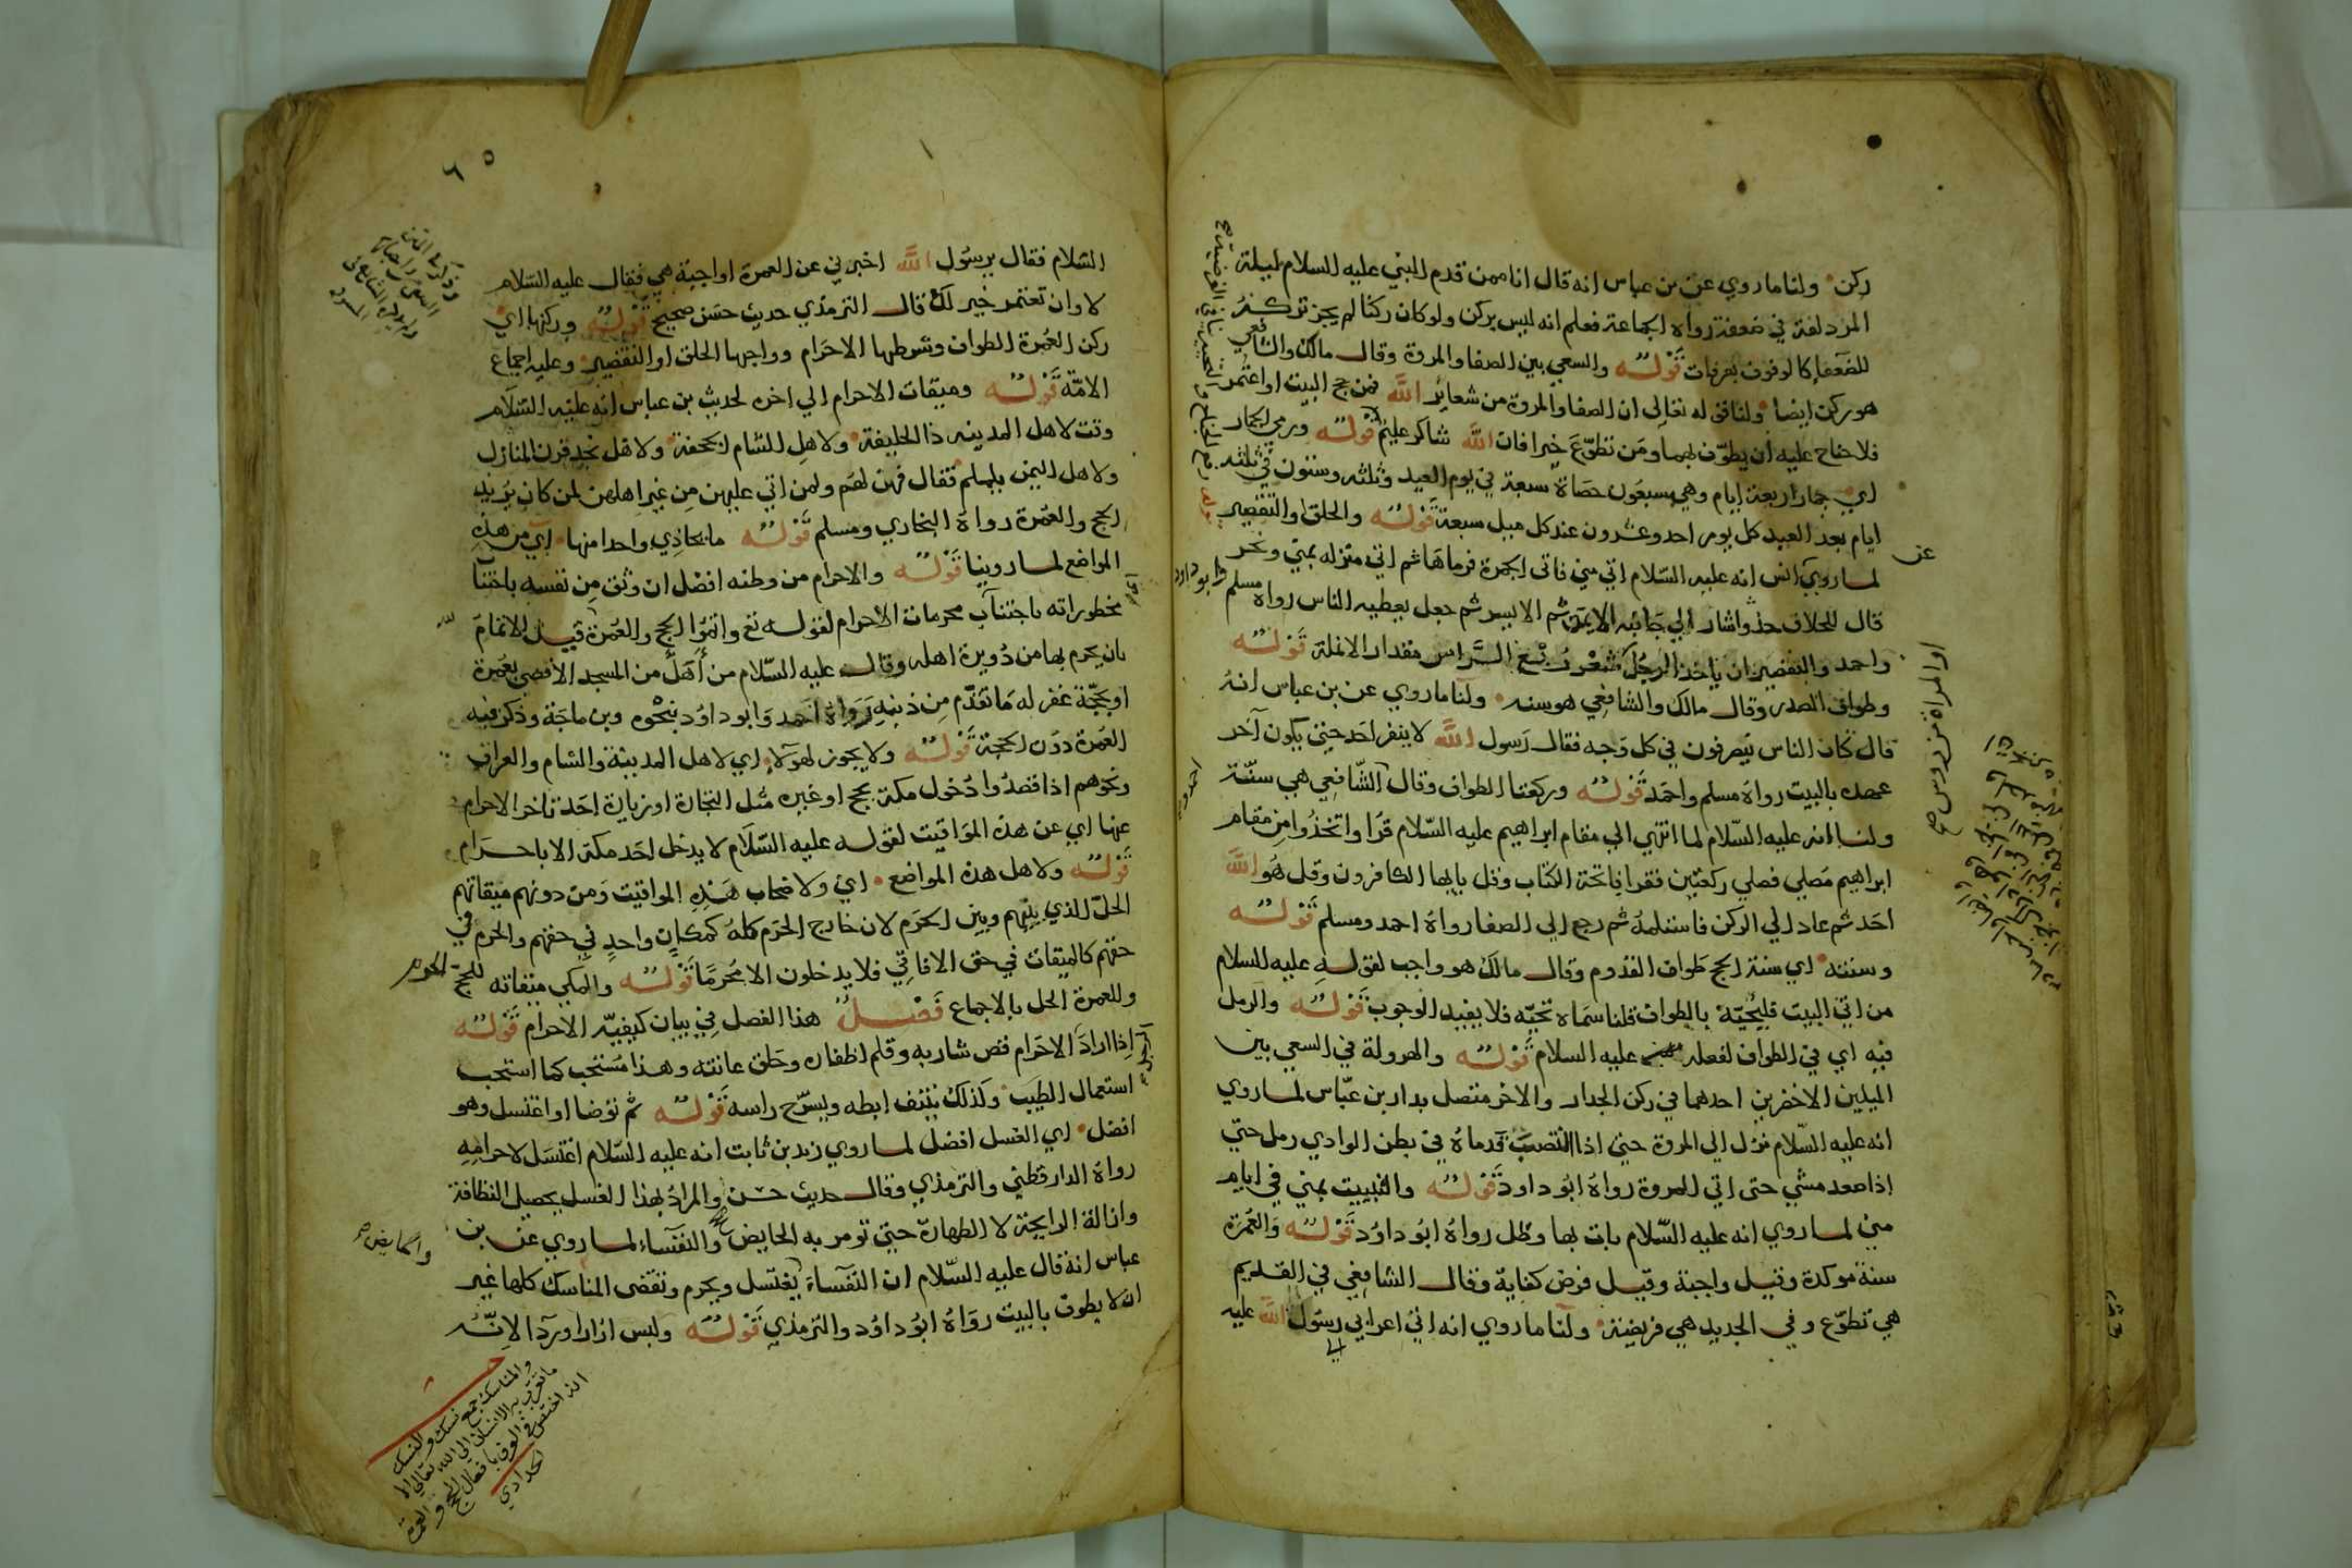 ركن ولنا ما روي عن بن عباس انه قال انا ممن قدم النبي عليه السلام ليلة
المزدلفة في ضعفة رواه الجماعة فعلم انه ليس بركن ولو كان ركنا لم يجز تركه
للضعفا كالوقوف بعرفات قوله والسعي بين الصفا والمروة وقال مالك والشافعي
هو ركن ايضا ولنا قوله تعالي ان الصفا والمروة من شعائر الله فمن حج البيت او اعتمر
فلا جناح عليه ان يطوّف بهما ومن تطوّع خيرا فان الله شاكر عليم قوله ورمي الجمار
اي جمار اربعة ايام وهي سبعون حصاة سبعة في يوم العيد وثلثه وستون في ثلثه
ايام بعد العيد كل يوم احد وعشرون عند كل ميل سبعة قوله والحلق والتقصير
لما روي انس انه عليه السلام اتي مني فاتى الجمرة فرماها ثم اتي منزله بمني ونحر
قال للحلاق خذ واشار الي جانبه الايمن ثم الايسر ثم جعل يعطيه الناس رواه مسلم وابو داود
واحمد والتقصير ان ياخذ الرجل شعور ربع الراس مقدار الانملة قوله
وطواف الصدر وقال مالك والشافعي هو سنه ولنا ما روي عن بن عباس انه
قال كان الناس ينصرفون في كل وجه فقال رسول الله لا ينفر احد حتي يكون آخر
عهده بالبيت رواه مسلم واحمد قوله وركعتا الطواف وقال الشافعي هي سنّة
ولنا انه عليه السلام لما انتهي الي مقام ابراهيم عليه السلام قرا واتخذوا من مقام
ابراهيم مصلي فصلي ركعتين فقرا فاتحة الكتاب وقل يا ايها الكافرون وقل هو الله
احد ثم عاد الي الركن فاستلمه ثم رجع الي الصفا رواه احمد ومسلم قوله
وسنته اي سنة الحج طواف القدوم وقال مالك هو واجب لقوله عليه السلام
من اتي البيت فليحيّه بالطواف قلنا سماه تحيّه فلا يفيد الوجوب قوله والرمل
فيه اي في الطواف لفعله عليه السلام قوله والهرولة في السعي بين
الميلين الاخضرين احدهما في ركن الجدار والاخر متصل بدار بن عبّاس لما روي
انه عليه السلام نزل الي المروة حتي اذا انتصبت قدماه في بطن الوادي رمل حتي
اذا صعد مشي حتى اتي المروة رواه ابو داود قوله والمبيت بمني في ايام
مني لما روي انه عليه السلام بات بها وظل رواه ابو داود قوله والعمرة
سنة موكدة وقيل واجبة وقيل فرض كفاية وقال الشافعي في القديم
هي تطوّع وفي الجديد هي فريضة ولنا ما روي انه اتي اعرابي رسول الله عليه
الي
عن
او المراة من روس
٦٥
السلام فقال يرسول الله اخبرني عن العمرة اواجبة هي فقال عليه السلام
لا وان تعتمر خير لك قال الترمذي حديث حسن صحيح قوله وركنها اي
ركن العمرة الطواف وشرطها الاحرام وواجبها الحلق او التقصير وعليه اجماع
الامّة قوله وميقات الاحرام الي اخره لحديث بن عباس انه عليه السلام
وقت لاهل المدينه ذا الحليفة ولاهل الشام الجحفة ولاهل نجد قرن المنازل
ولاهل اليمن يلملم فقال فهن لهم ولمن اتي عليهن من غير اهلهن لمن كان يريد
الحج والعمرة رواه البخاري ومسلم قوله ما يحاذي واحدا منها اي من هذه
المواضع لما روينا قوله والاحرام من وطنه افضل ان وثق من نفسه باجتناب
محظوراته باجتناب محرمات الاحرام لقوله تع واتموا الحج والعمرة قيل الاتمام
بان يحرم بها من دويرة اهله وقال عليه السلام من أهلّ من المسجد الاقصي بعمرة
او بحجّة غفر له ما تقدّم من ذنبه رواه احمد وابو داود بنحوه وبن ماجة وذكر فيه
العمرة دون الحجة قوله ولا يجوز لهولا اي لاهل المدينة والشام والعراق
ونحوهم اذا قصدوا دخول مكة بحج او غيره مثل التجارة او زيارة احد تاخر الاحرام
عنها اي عن هذه المواقيت لقوله عليه السلام لا يدخل احد مكة الا باحرام
قوله ولاهل هذه المواضع اي ولاصحاب هذه المواقيت ومن دونهم ميقاتهم
الحلّ الذي بينهم وبين الحرم لان خارج الحرم كله كمكان واحد في حقهم والحرم في
حقهم كالميقات في حق الافاقي فلا يدخلون الا محرما قوله والمكي ميقاته للحج الحرم
وللعمرة الحل بالاجماع فصل هذا الفصل في بيان كيفيّه الاحرام قوله
اذا اراد الاحرام قص شاربه وقلم اظفاره وحلق عانته وهذا مستحب كما استحب
استعمال الطيب وكذلك ينتف ابطه ويسرّح راسه قوله ثم توضا او اغتسل وهو
افضل اي الغسل افضل لما روي زيد بن ثابت انه عليه السلام اغتسل لاحرامه
رواه الدارقطني والترمذي وقال حديث حسن والمراد بهذا الغسل يحصيل النظافة
وازالة الرايحة لا الطهارة حتي تومر به الحايض والنفساء لما روي عن بن
عباس انه قال عليه السلام ان النفساء تغتسل وتحرم وتقضى المناسك كلها غير
ان لا يطوف بالبيت رواه ابو داود والترمذي قوله ولبس ازارا وردآ لانّه
والحايض
والمناسك جمع نسك والنسك
ما تقرّب به الانسان الي الله تعالي الا
انه اختص في العرف بافعال الحج والعمرة
حدادي